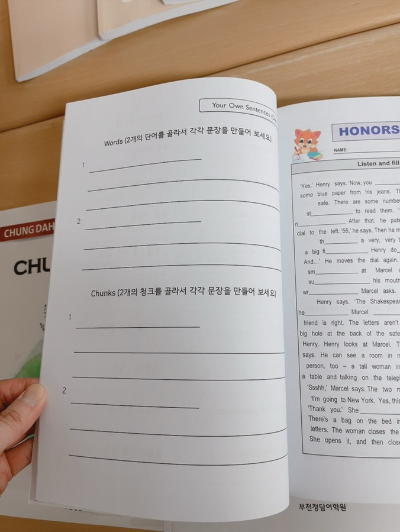 Your Own Sentences
Words (2개의 단어를 골라서 각각 문장을 만들어 보세요)
1
2
Chunks (2개의 청크를 골라서 각각 문장을 만들어 보세요)
1
2
CHUNG DAH
CHU
HONORS
NAME:
Listen and fill
'Yes,' Henry says. 'Now, you
some blue paper from his jeans. Th
safe. There are some number
st to read them.
n After that, he put
dial to the left. '55,' he says. Then he m
th a very, very
a big fi Henry do
And...' He moves the dial again.
sm at Marcel
su his mouth
wr Marcel asks.
Henry says. 'The Shakespea
he Marcel
friend is right. The letters aren't
big hole at the back of the safe
Henry. Henry looks at Marcel. T
says. He can see a room in n
person, too – a tall woman in
a table and talking on the teleph
'Ssshh,' Marcel says. The two m
'I'm going to New York. Yes, this
'Thank you.' She
There's a bag on the bed in
letters. The woman closes the
She opens it, and then close
부전정담어학원